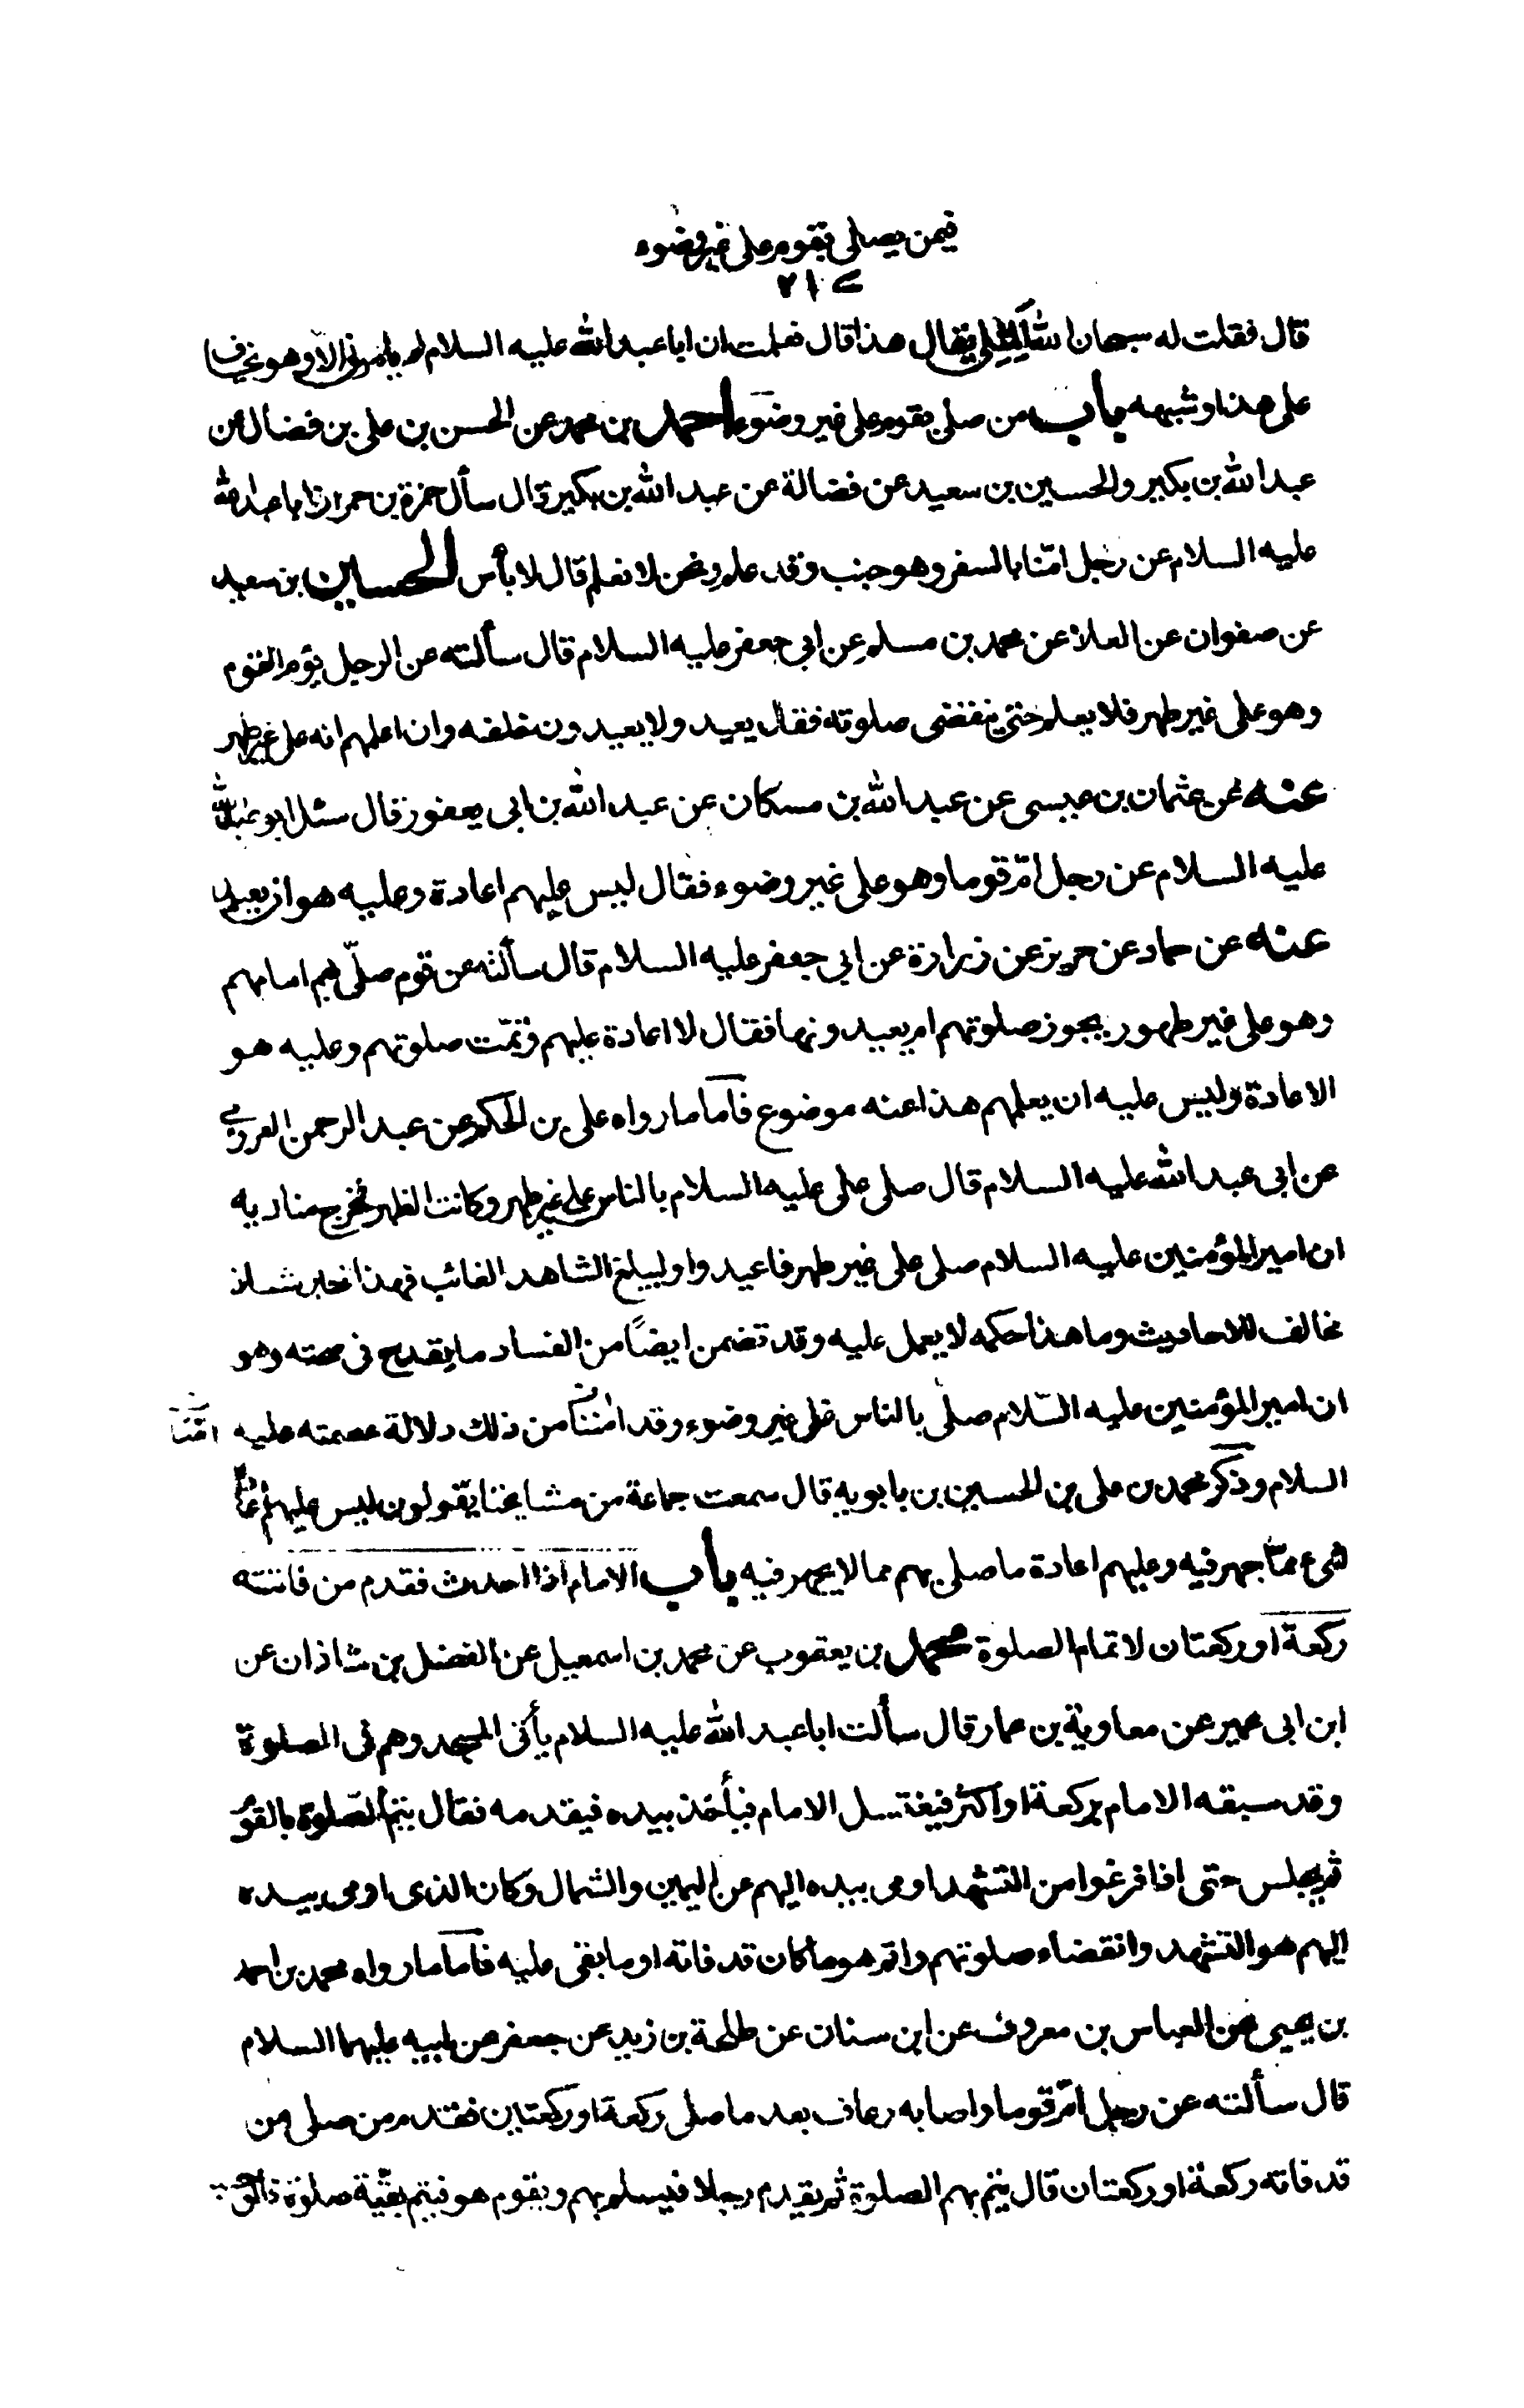 فيمن يصلى بقوم على غير وضوء
٢١٤
قال فقلت له سبحان الله يقال هذا قال فعلمت ان ابا عبد الله عليه السلام لم يأمرنى الا وهو يخاف
على هذا وشبهه باب من صلى بقوم على غير وضوء احمد بن محمد عن الحسن بن على بن فضال عن
عبد الله بن بكير والحسين بن سعيد عن فضالة عن عبد الله بن بكير قال سأل حمزة بن حمران ابا عبد الله
عليه السلام عن رجل امّنا بالسفر وهو جنب وقد علم ونحن لا نعلم قال لا بأس الحسين بن سعيد
عن صفوان عن العلا عن محمد بن مسلم عن ابى جعفر عليه السلام قال سألته عن الرجل يؤم القوم
وهو على غير طهر فلا يعلم حتى ينقضى صلوته فقال يعيد ولا يعيدون خلفه وان اعلمهم انه على غير طهر
عنه عن عثمان بن عيسى عن عبد الله بن مسكان عن عبد الله بن ابى يعفور قال سئل ابو عبد الله
عليه السلام عن رجل امّ قوما وهو على غير وضوء فقال ليس عليهم اعادة وعليه هو ان يعيد
عنه عن حماد عن حريز عن زرارة عن ابى جعفر عليه السلام قال سألته عن قوم صلّى بهم امامهم
وهو على غير طهور يجوز صلوتهم ام يعيدونها فقال لا اعادة عليهم وتمّت صلوتهم وعليه هو
الاعادة وليس عليه ان يعلمهم هذا عنه موضوع فاما ما رواه على بن الحكم عن عبد الرحمن العرزمى
عن ابى عبد الله عليه السلام قال صلى على عليه السلام بالناس على غير طهر وكانت الظهر فخرج مناديه
ان امير المؤمنين عليه السلام صلى على غير طهر فاعيدوا وليبلغ الشاهد الغائب فهذا خبر شاذ
مخالف للاحاديث وما هذا حكمه لا يعمل عليه وقد تضمن ايضًا من الفساد ما يقدح فى صحته وهو
ان امير المؤمنين عليه السّلام صلى بالناس على غير وضوء وقد امننا من ذلك دلالة عصمته عليه
السلام وذكر محمد بن على بن الحسين بن بابويه قال سمعت جماعة من مشايخنا يقولون ليس عليهم اعادة
شىء ممّا جهر فيه وعليهم اعادة ما صلى بهم مما لا يجهر فيه باب الامام اذا احدث فقدم من فاتته
ركعة او ركعتان لاتمام الصلوة محمد بن يعقوب عن محمد بن اسمعيل عن الفضل بن شاذان عن
ابن ابى عمير عن معاوية بن عمار قال سألت ابا عبد الله عليه السلام يأتى المسجد وهم فى الصلوة
وقد سبقه الامام بركعة او اكثر فيغتسل الامام فيأخذ بيده فيقدمه فقال يتم الصّلوة بالقوم
ثم يجلس حتى اذا فرغوا من التشهد اومى بيده اليهم عن اليمين والشمال وكان الذى اومى بيده
اليهم هو التشهد وانقضاء صلوتهم واتم هو ما كان قد فاته او ما بقى عليه فاما ما رواه محمد بن احمد
بن يحيى عن العباس بن معروف عن ابن سنان عن طلحة بن زيد عن جعفر عن ابيه عليهما السلام
قال سألته عن رجل امّ قوما واصابه رعاف بعد ما صلى ركعة او ركعتين فقدم من صلى من
قد فاته ركعة او ركعتان قال يتم بهم الصلوة ثم يقدم رجلا فيسلم بهم ويقوم هو فيتم بقيّة صلوته